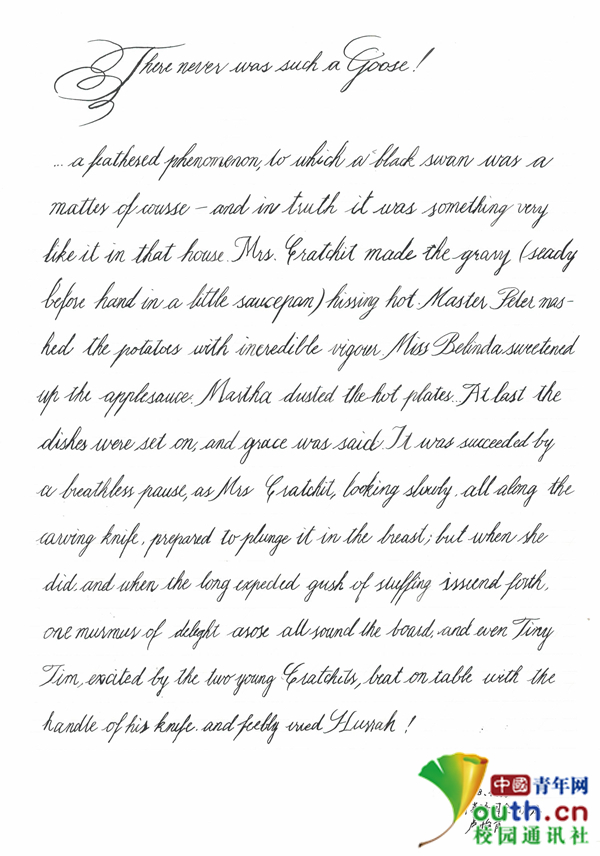 There never was such a Goose!
... a feathered phenomenon, to which a black swan was a
matter of course – and in truth it was something very
like it in that house. Mrs. Cratchit made the gravy (ready
before hand in a little saucepan) hissing hot. Master Peter mas-
hed the potatoes with incredible vigour. Miss Belinda sweetened
up the applesauce. Martha dusted the hot plates.. At last the
dishes were set on, and grace was said. It was succeeded by
a breathless pause, as Mrs Cratchit, looking slowly, all along the
carving knife, prepared to plunge it in the breast; but when she
did, and when the long expected gush of stuffing issuend forth,
one murmur of delight arose all round the board, and even Tiny
Tim, excited by the two young Cratchits, beat on table with the
handle of his knife. and feebly cried Hurrah!
中国青年网
youth.cn
校园通讯社